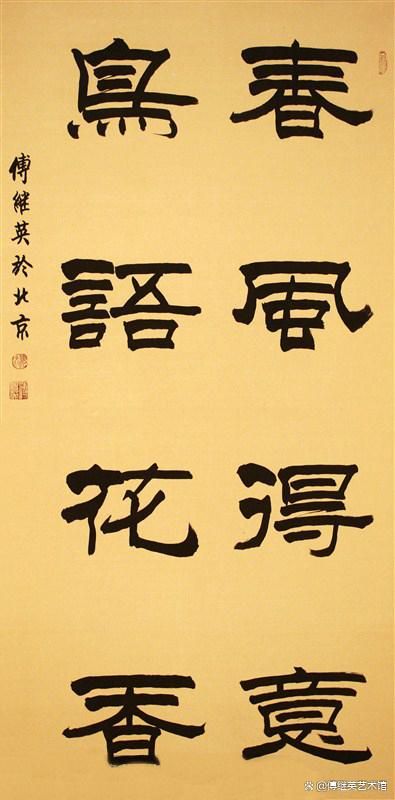 春風得意
鳥語花香
傅继英於北京
@傅继英艺术馆